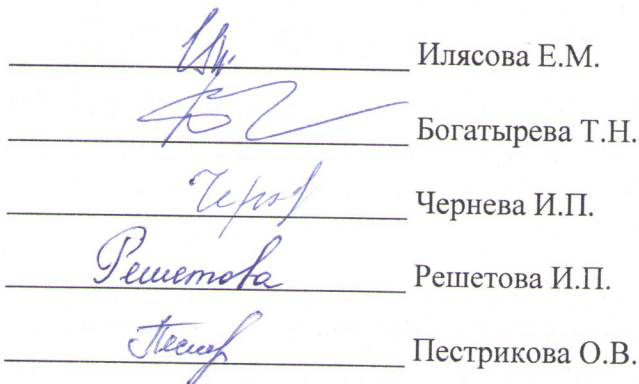 Илясова Е.М.
Богатырева Т.Н.
Чернева И.П.
Решетова Решетова И.П.
Пестрикова О.В.